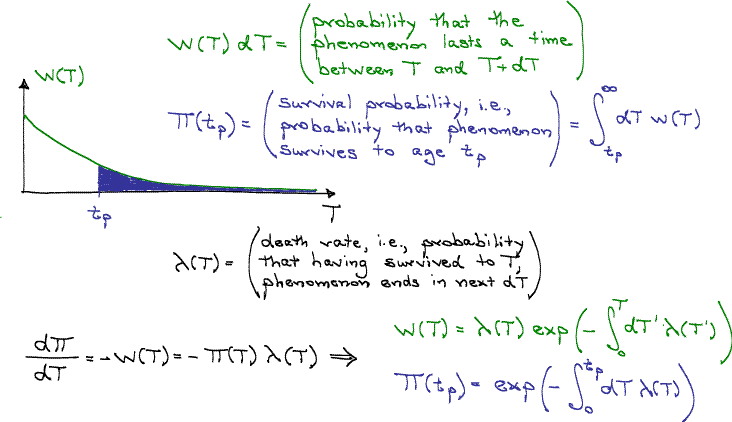 w(T) dT = (probability that the
phenomenon lasts a time
between T and T+dT)
w(T)
Π(t_p) = (survival probability, i.e.,
probability that phenomenon
survives to age t_p) = ∫_{t_p}^∞ dT w(T)
t_p
T
λ(T) = (death rate, i.e., probability
that having survived to T,
phenomenon ends in next dT)
dΠ/dT = -w(T) = -Π(T) λ(T) ⇒
w(T) = λ(T) exp(-∫_0^T dT' λ(T'))
Π(t_p) = exp(-∫_0^{t_p} dT λ(T))